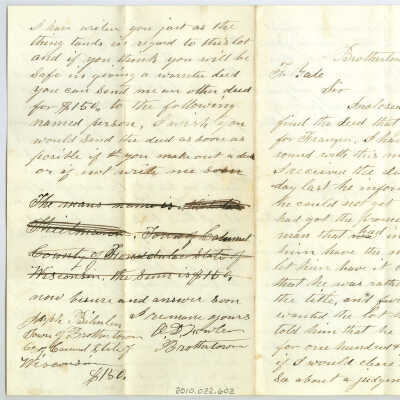 I have writen you just as the
thing tands in regard to this lot
and if you think you will be
safe in giving a warnte deed
you can send me an other deed
for $150. to the following
named person, I wish you
would send the deed as soon as
posible if you make out a deed
or if not write me soon
The mans name is
Town of Calumet
County of Fond du lac State of
Wisconsin, the sum is $150.
now besure and answer soon
I remane yours
O. D. Fowler
Brothertown
Joseph
Town of Brothertown
Co. of Calumet State of
Wisconsin
$150.
Brothertow
Th Gale
Sir
Inclosed
find the deed that
for Franyer. I ha
sound with this m
I receive the de
day last he infor
he could not get
had got the prome
man that had in
him have the m
let him have it
that he was rathe
the title, and
wanted the lot
told him that he
for one hundred
if I would clear
se about a judgme
2010.022.602